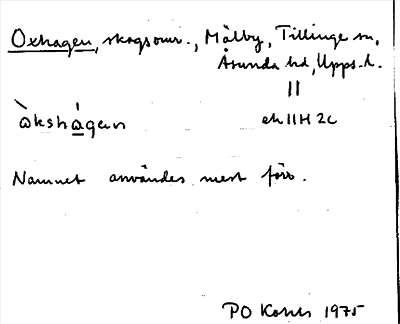 Oxhagen, skogsomr., Mälby, Tillinge sn,
Åsunda hd, Upps. l.
||
ek 11H 2c
ὼkshá̱gen
Namnet användes mest förr.
PO 1975